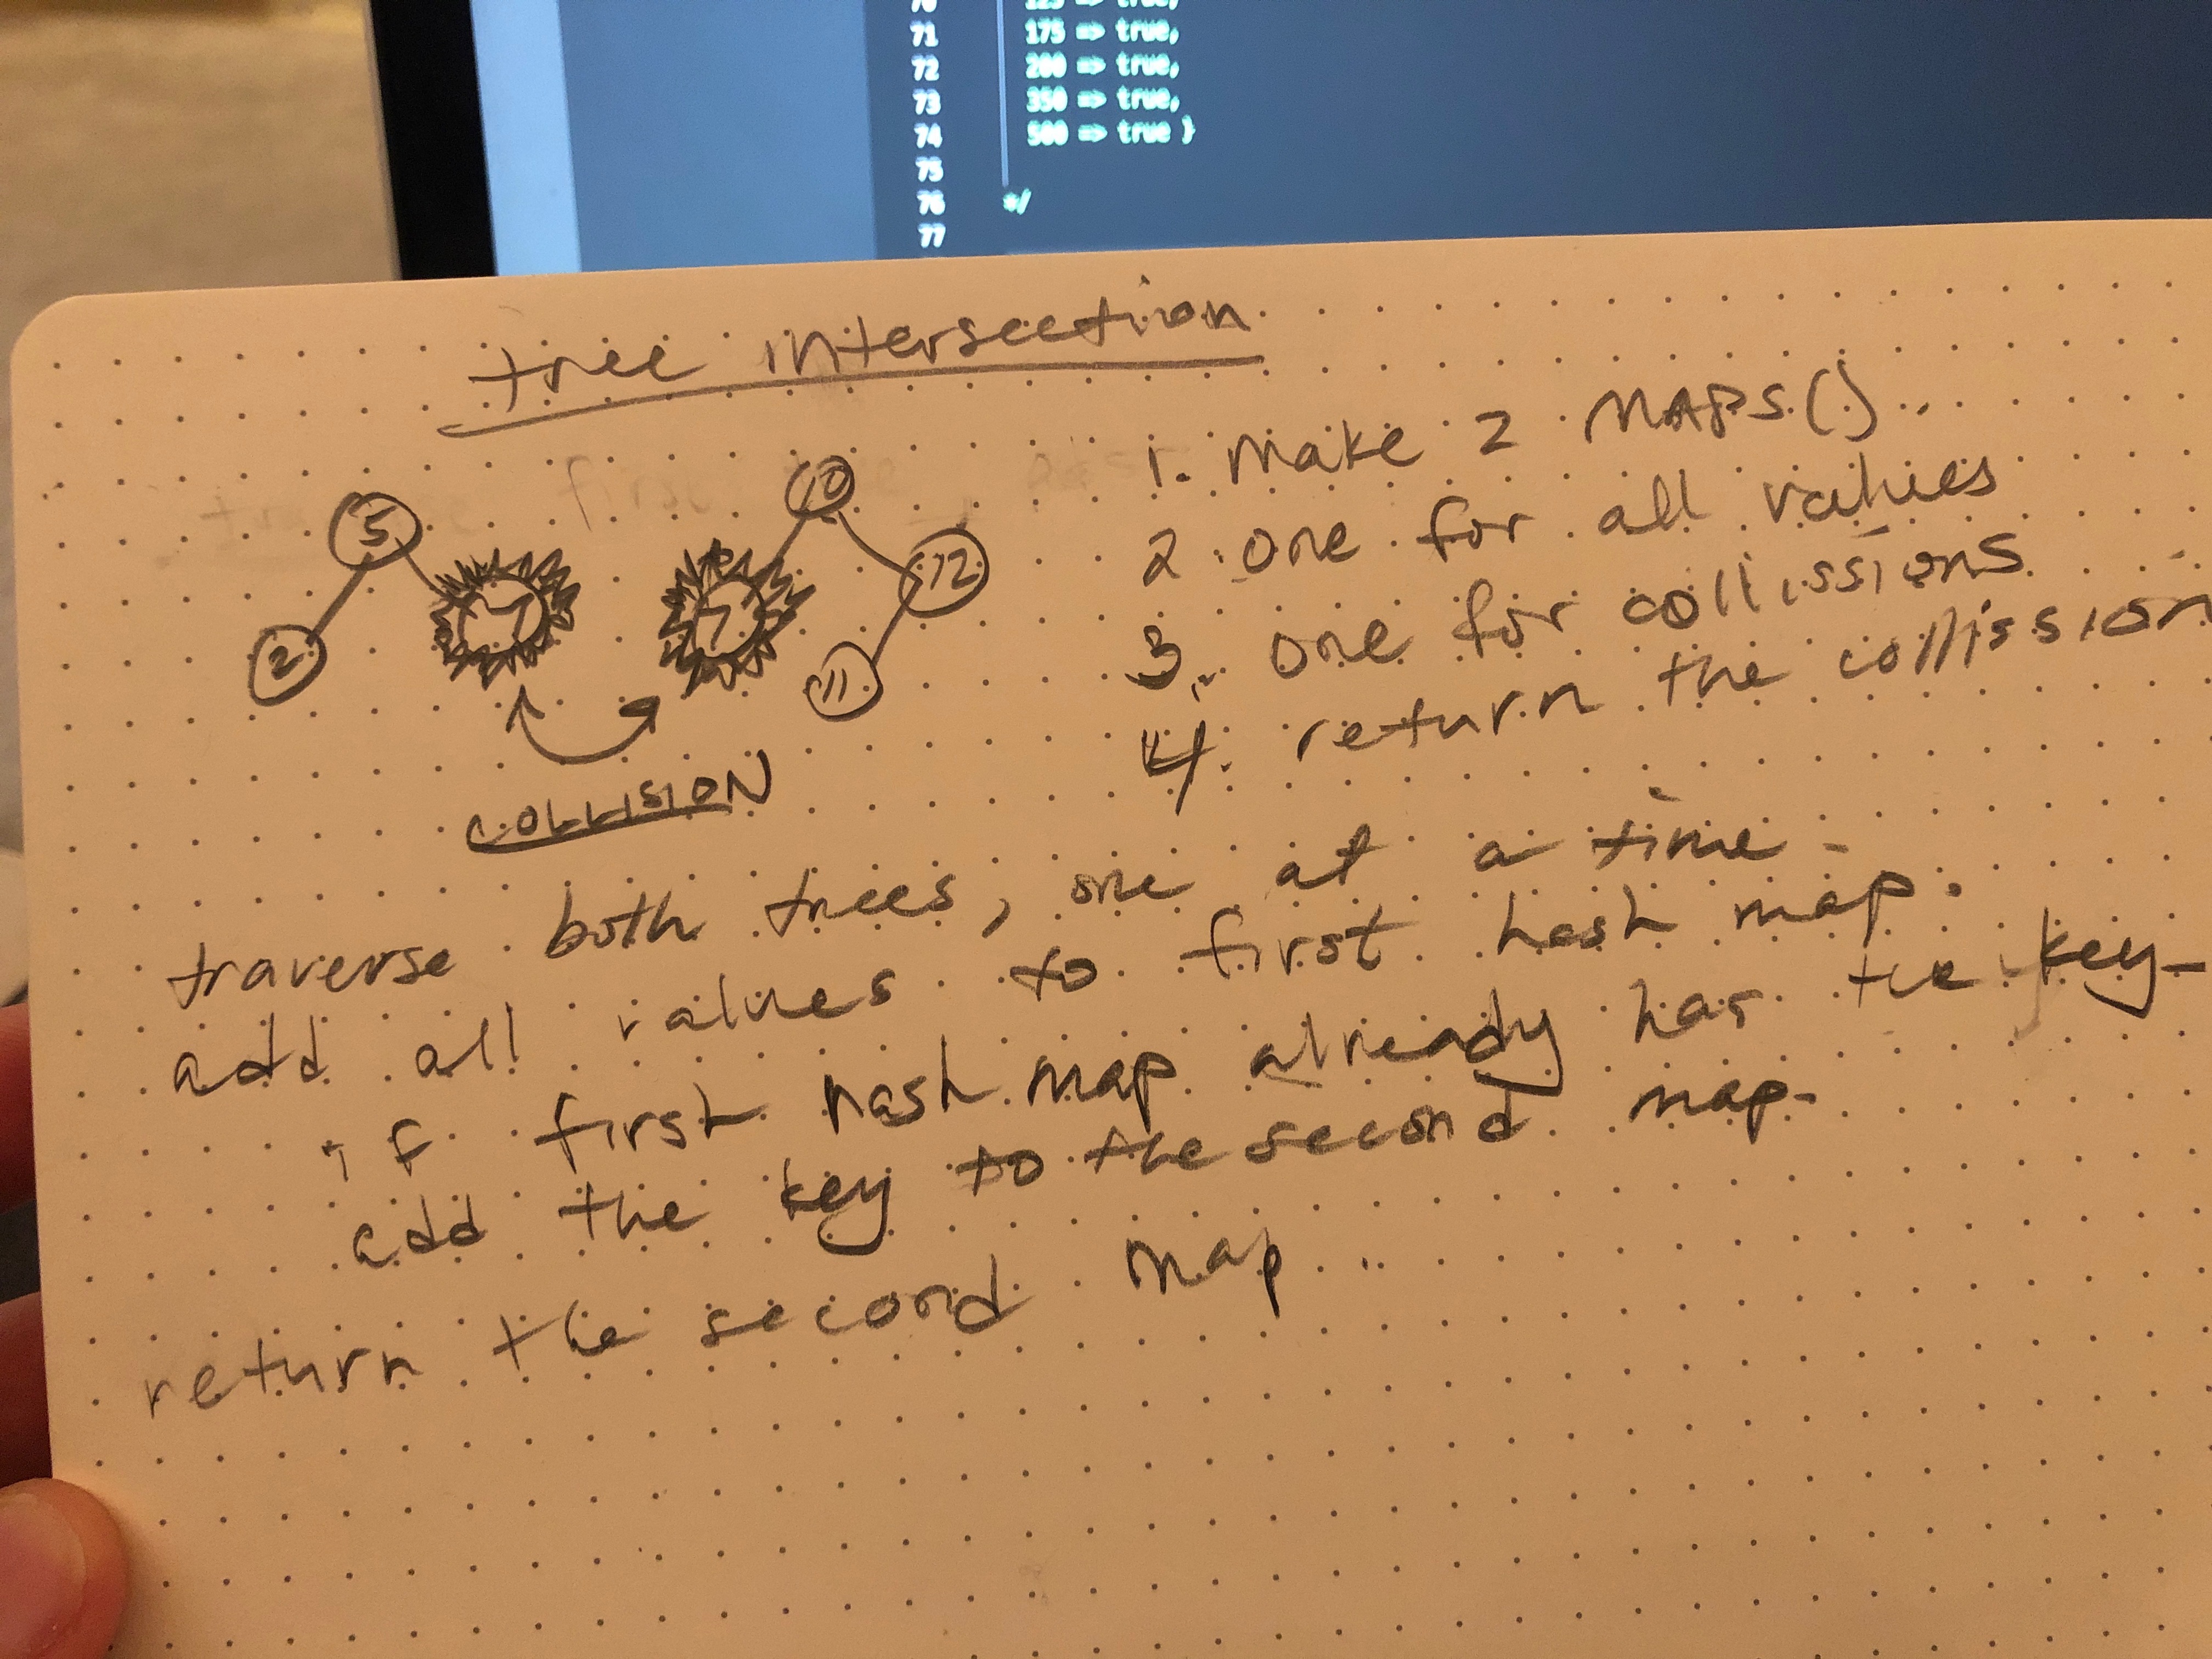 70 125 => true,
71 175 => true,
72 200 => true,
73 350 => true,
74 500 => true }
75
76 */
77
tree intersection
1. Make 2 MAPS()
2. one for all values
3. one for collissions
4. return the collission
5
2
7
10
7
12
11
COLLISION
traverse both trees, one at a time.
add all values to first hash map.
if first hash map already has the key-
add the key to the second map.
return the second map